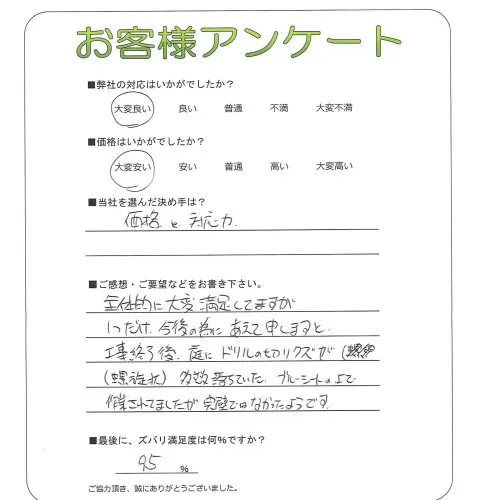 お客様アンケート
■弊社の対応はいかがでしたか？
大変良い 良い 普通 不満 大変不満
■価格はいかがでしたか？
大変安い 安い 普通 高い 大変高い
■当社を選んだ決め手は？
価格と対応力.
■ご感想・ご要望などをお書き下さい。
全体的に大変満足してますが
1つだけ、今後の為にあえて申しますと、
工事終了後、庭にドリルの切りクズが
(螺旋状) 多数落ちていた。ブルーシートの上で
作業されてましたが完璧ではなかったようです。
■最後に、ズバリ満足度は何％ですか？
95 ％
ご協力頂き、誠にありがとうございました。